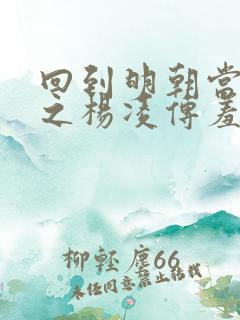 回到明朝当
之杨凌传羞
柳轻尘66
未经同意禁止转载